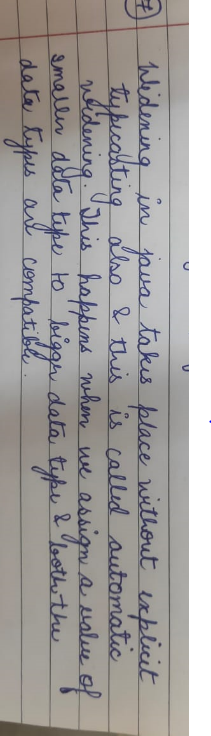 7 Widening in java takes place without explicit
typicasting also & this is called automatic
widening. This happens when we assign a value of
smaller data type to bigger data type & both the
data types are compatible.